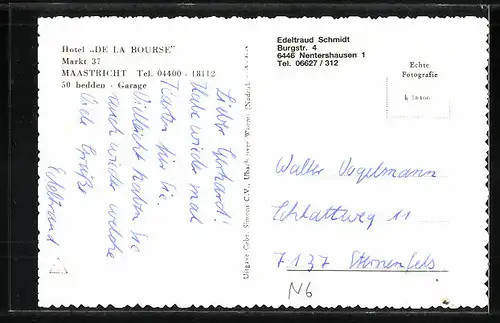 Hotel „DE LA BOURSE"
Markt 37
MAASTRICHT Tel. 04400 - 18112
50 bedden - Garage
Lieber Gerhard!
Habe wieder mal
Karten für Sie.
Vielleicht haben Sie
auch wieder welche
Viele Grüße
Edeltraud
Uitgave Gebr. Simons C.V., Ubach over Worms
Edeltraud Schmidt
Burgstr. 4
6446 Nentershausen 1
Tel. 06627 / 312
Echte
Fotografie
Walter Vogelmann
Schlattweg 11
7137 Sternenfels
N6